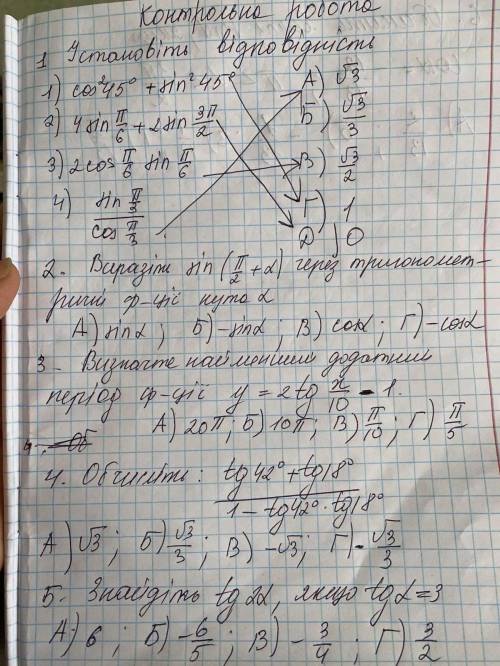 Контрольна робота
1 Установіть відповідність
1) cos²45° + sin²45° А) √3
2) 4 sin π/6 + 2 sin 3π/2 Б) √3/3
3) 2 cos π/6 sin π/6 В) √3/2
4) sin π/3 / cos π/3 Г) 1
Д) 0
2. Виразіть sin (π/2 + α) через тригономет-
ричні ф-ції кута α
А) sinα ; Б) -sinα ; В) cosα ; Г) -cosα
3 - Визначте найменший додатний
період ф-ції y = 2tg x/10 - 1.
А) 20π ; Б) 10π ; В) π/10 ; Г) π/5
4. Обчисліть : tg42° + tg18° / 1 - tg42° · tg18°
А) √3 ; Б) √3/3 ; В) -√3 ; Г) -√3/3
5. Знайдіть tg2α, якщо tgα = 3
А) 6 ; Б) -6/5 ; В) -3/4 ; Г) 3/2